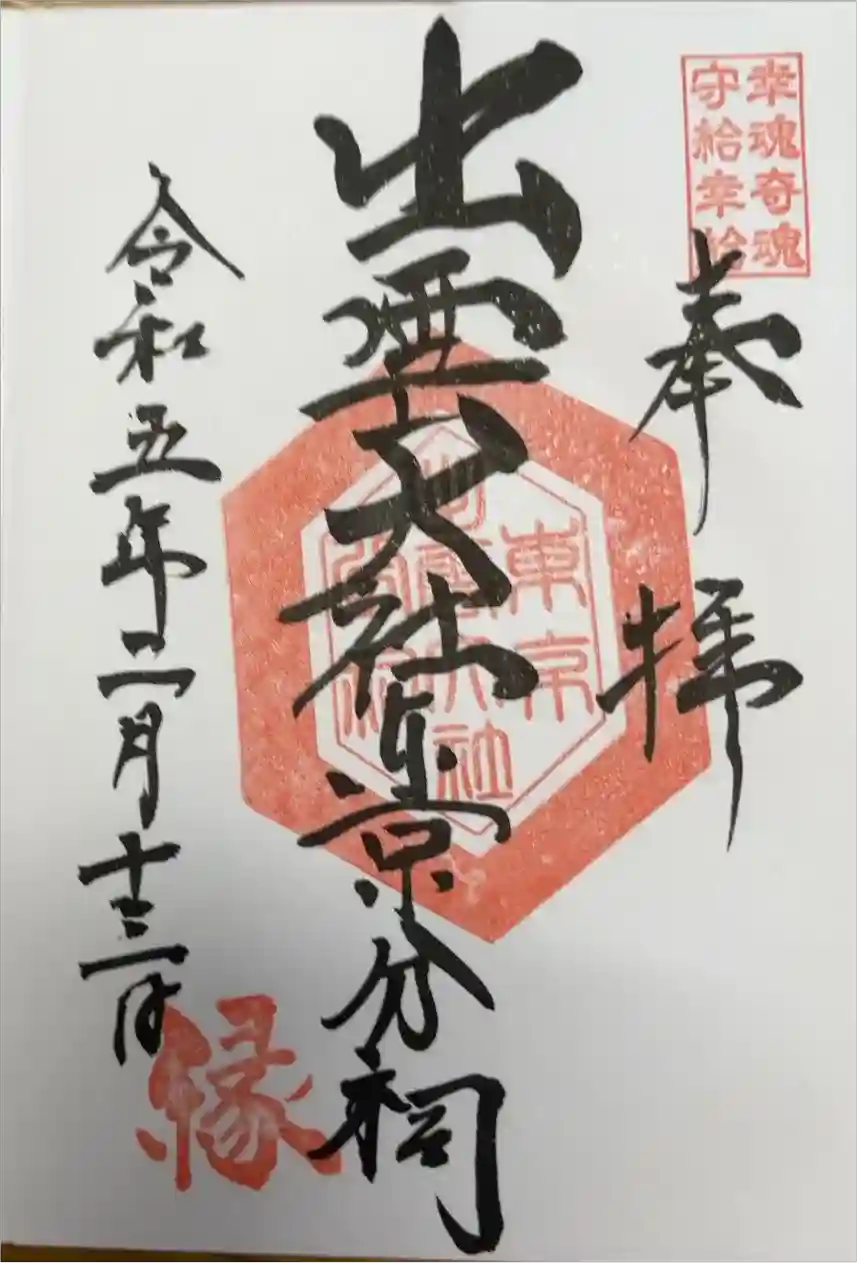 幸魂奇魂
守給幸給
奉拝
出雲大社東京分祠
東京
出雲大社
分祠
令和五年二月十三日
縁